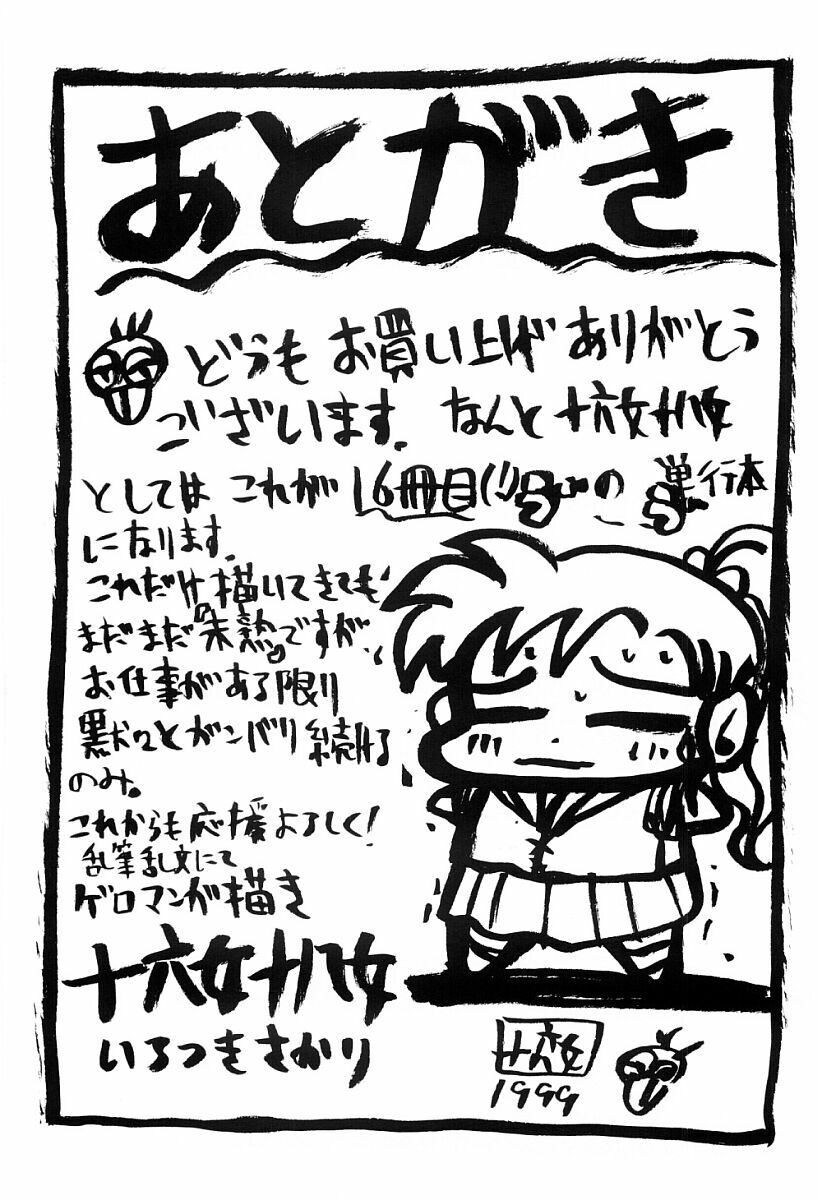 あとがき
どうもお買い上げありがとう
ございます。なんと十六女十八女
としては これが16冊目(!)の 単行本
になります。
これだけ描いてきても
まだまだ『未熟』ですが、
お仕事がある限り
黙々とガンバリ続ける
のみ。
これからも応援よろしく!
乱筆乱文にて
ゲロマンガ描き
十六女十八女
いろつきさかり
1999